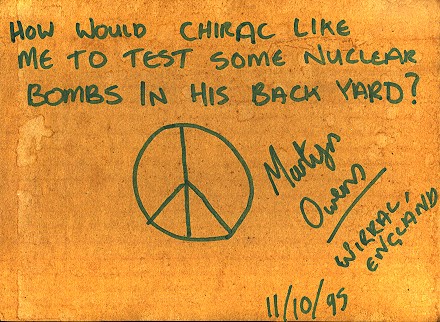 HOW WOULD CHIRAC LIKE
ME TO TEST SOME NUCLEAR
BOMBS IN HIS BACK YARD?
Martyn
Owens
WIRRAL,
ENGLAND
11/10/95